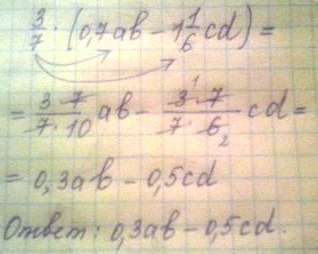 3/7 · (0,7ab − 1 1/6 cd) =
= 3·7/7·10 ab − 3·7/7·6 cd =
= 0,3ab − 0,5cd
Ответ: 0,3ab − 0,5cd.